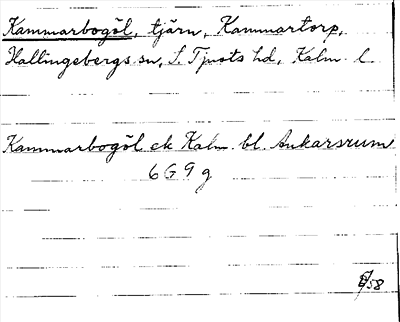 Kammarbogöl, tjärn, Kammartorp,
Hallingebergs sn, S. Tjusts hd, Kalm. l.
Kammarbogöl ek Kalm. bl. Ankarsrum
6 G 9 g
/58